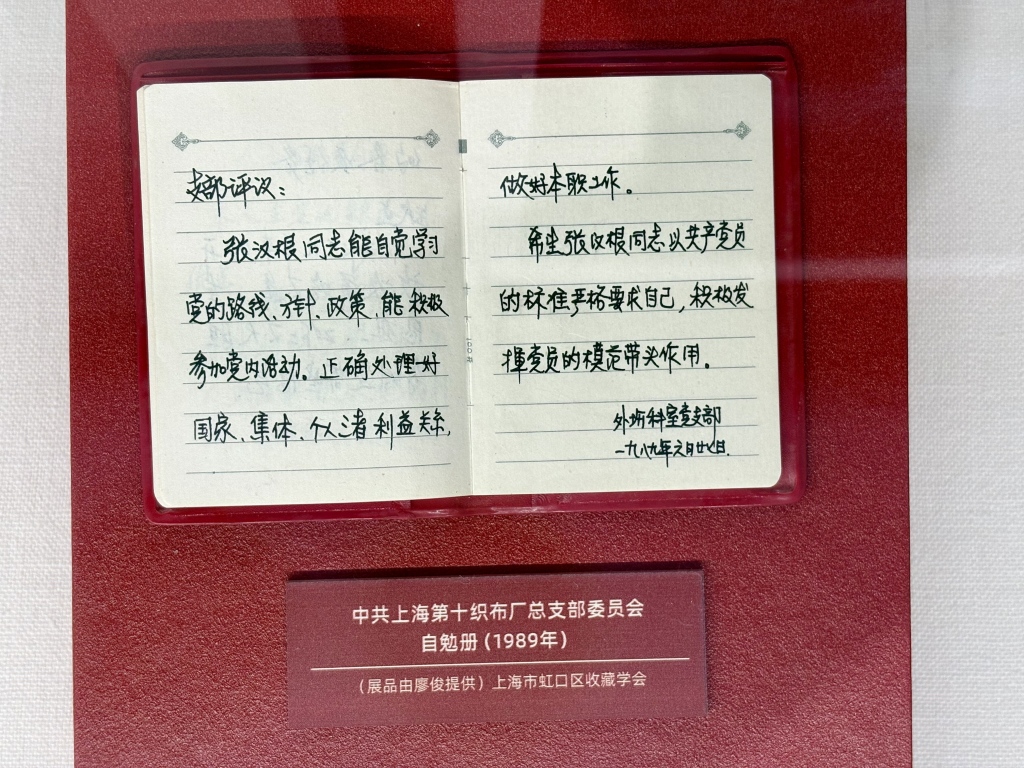 支部评议：
张汉根同志能自觉学习
党的路线、方针、政策、能积极
参加党内活动。正确处理好
国家、集体、个人三者利益关系,
做好本职工作。
希望张汉根同志以共产党员
的标准严格要求自己，积极发
挥党员的模范带头作用。
科室党支部
一九八九年元月廿七日.
中共上海第十织布厂总支部委员会
自勉册 (1989年)
（展品由廖俊提供）上海市虹口区收藏学会